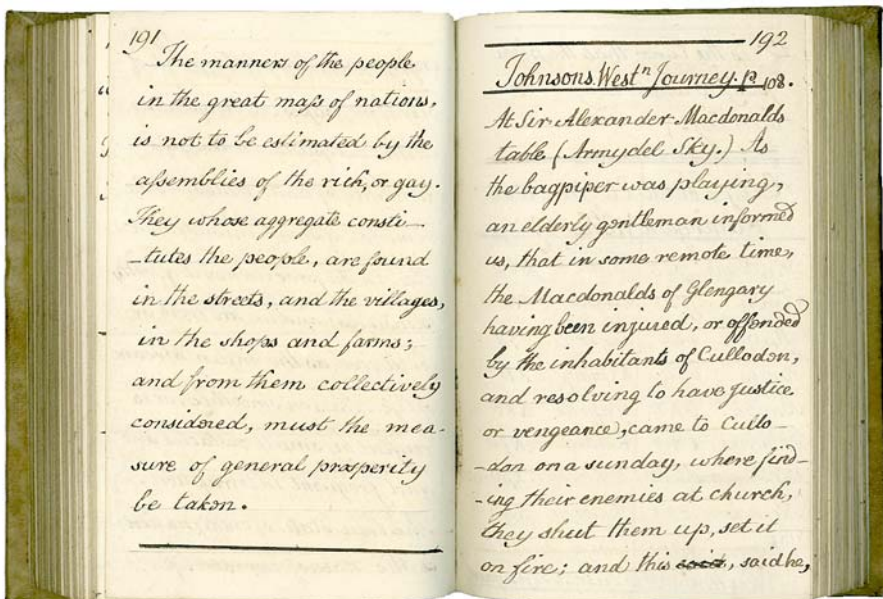 191
The manners of the people
in the great mass of nations,
is not to be estimated by the
assemblies of the rich, or gay.
They whose aggregate consti-
-tutes the people, are found
in the streets, and the villages,
in the shops and farms;
and from them collectively
considered, must the mea-
sure of general prosperity
be taken.
192
Johnsons West<sup>n</sup> Journey. p. 108.
At Sir Alexander Macdonalds
table (Armydel Sky.) As
the bagpiper was playing,
an elderly gentleman informed
us, that in some remote time,
the Macdonalds of Glengary
having been injured, or offended
by the inhabitants of Cullodon,
and resolving to have justice
or vengeance, came to Cullo-
-don on a sunday, where find-
-ing their enemies at church,
they shut them up, set it
on fire; and this said, said he,